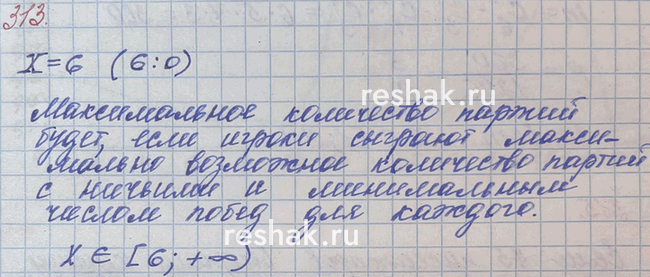 313.
X=6 (6:0)
reshak.ru
Максимальное количество партий
будет, если игроки сыграют макси-
мально возможное количество партий
с ничьими и минимальным
числом побед для каждого.
reshak.ru
X ∈ [6; +∞)